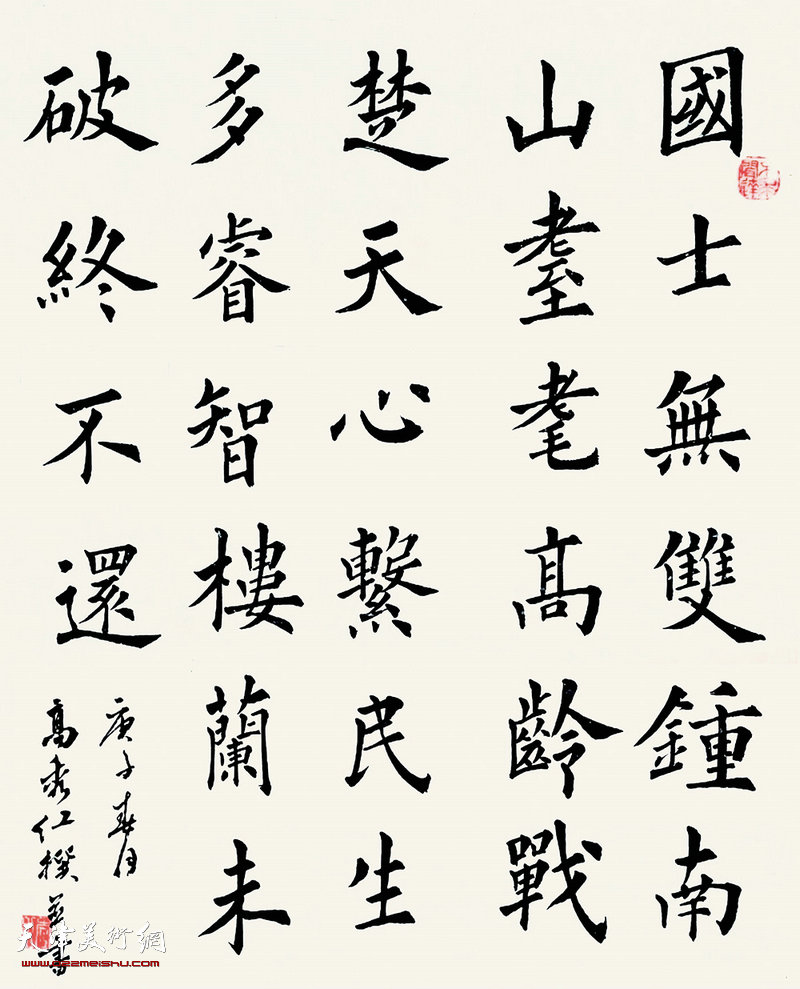 國士無雙鍾南
山耋耄高齡戰
楚天心繫民生
多睿智樓蘭未
破終不還
庚子春月
高秀仁撰並書
天津美術網
www.022meishu.com